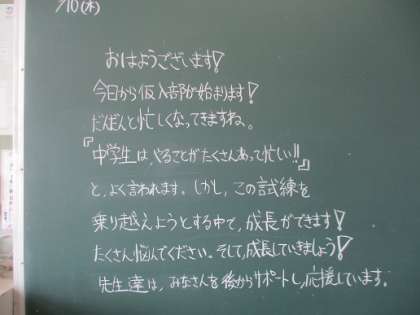 /10(木)
おはようございます!
今日から仮入部が始まります!
だんだんと忙しくなってきますね。
『中学生は、やることがたくさんあって忙い!!』
と、よく言われます。しかし、この試練を
乗り越えようとする中で、成長ができます!
たくさん悩んでください。そして、成長していきましょう!
先生達は、みなさんを後からサポートし、応援しています。